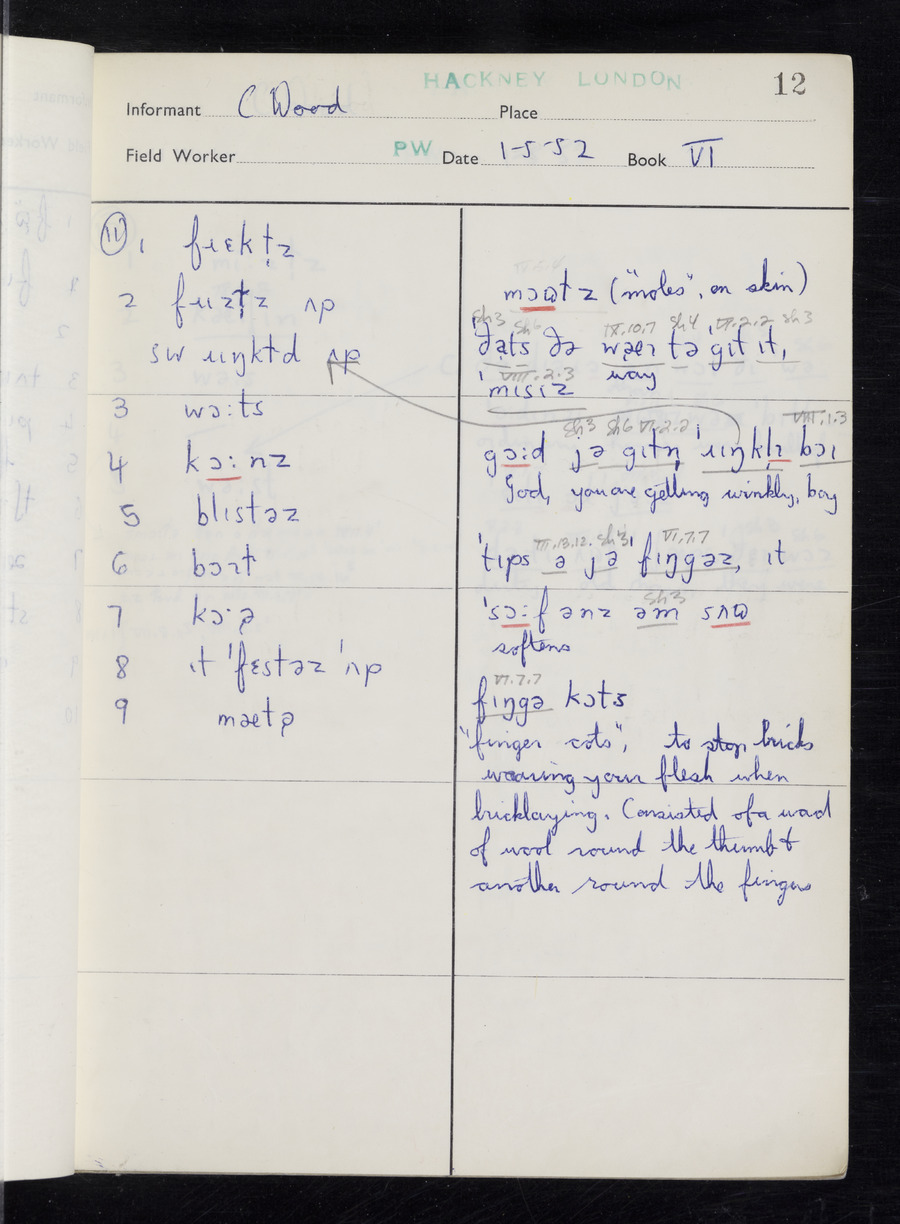 HACKNEY LONDON
12
Informant C Wood Place
Field Worker PW Date 1-5-52 Book VI
11 1 fɹɛkɫ̩z
2 fɹɪzɫ̩z ʌp
sw ɹɪŋkɫ̩d ʌp
3 wɔ:ts
4 kɔ:nz
5 blɪstəz
6 bɔɪɫ
7 kɔ·ə
8 ɪt 'fɛstəz 'ʌp
9 mætə
mɔɷɫz ("moles", on skin)
sh3 sh6 IX.10.7 sh4 VI.2.2 sh3
'ðæts ðə wæɪ tə gɪt ɪt,
way
VIII.2.3
'mɪsɪz
sh3 sh6 VI.2.2 VIII.1.3
gɔ:d jə gɪtn̩ 'ɹɪŋklɪ bɔɪ
God, you are getting wrinkly, boy
VI.7.7
'tɪps ə jə fɪŋgəz, ɪt
sh3
'sɔ:fənz əm sʌɷ
softens
VI.7.7
fɪŋgə kɔts
"finger cots", to stop bricks
wearing your flesh when
bricklaying. Consisted of a wad
of wool round the thumb &
another round the fingers